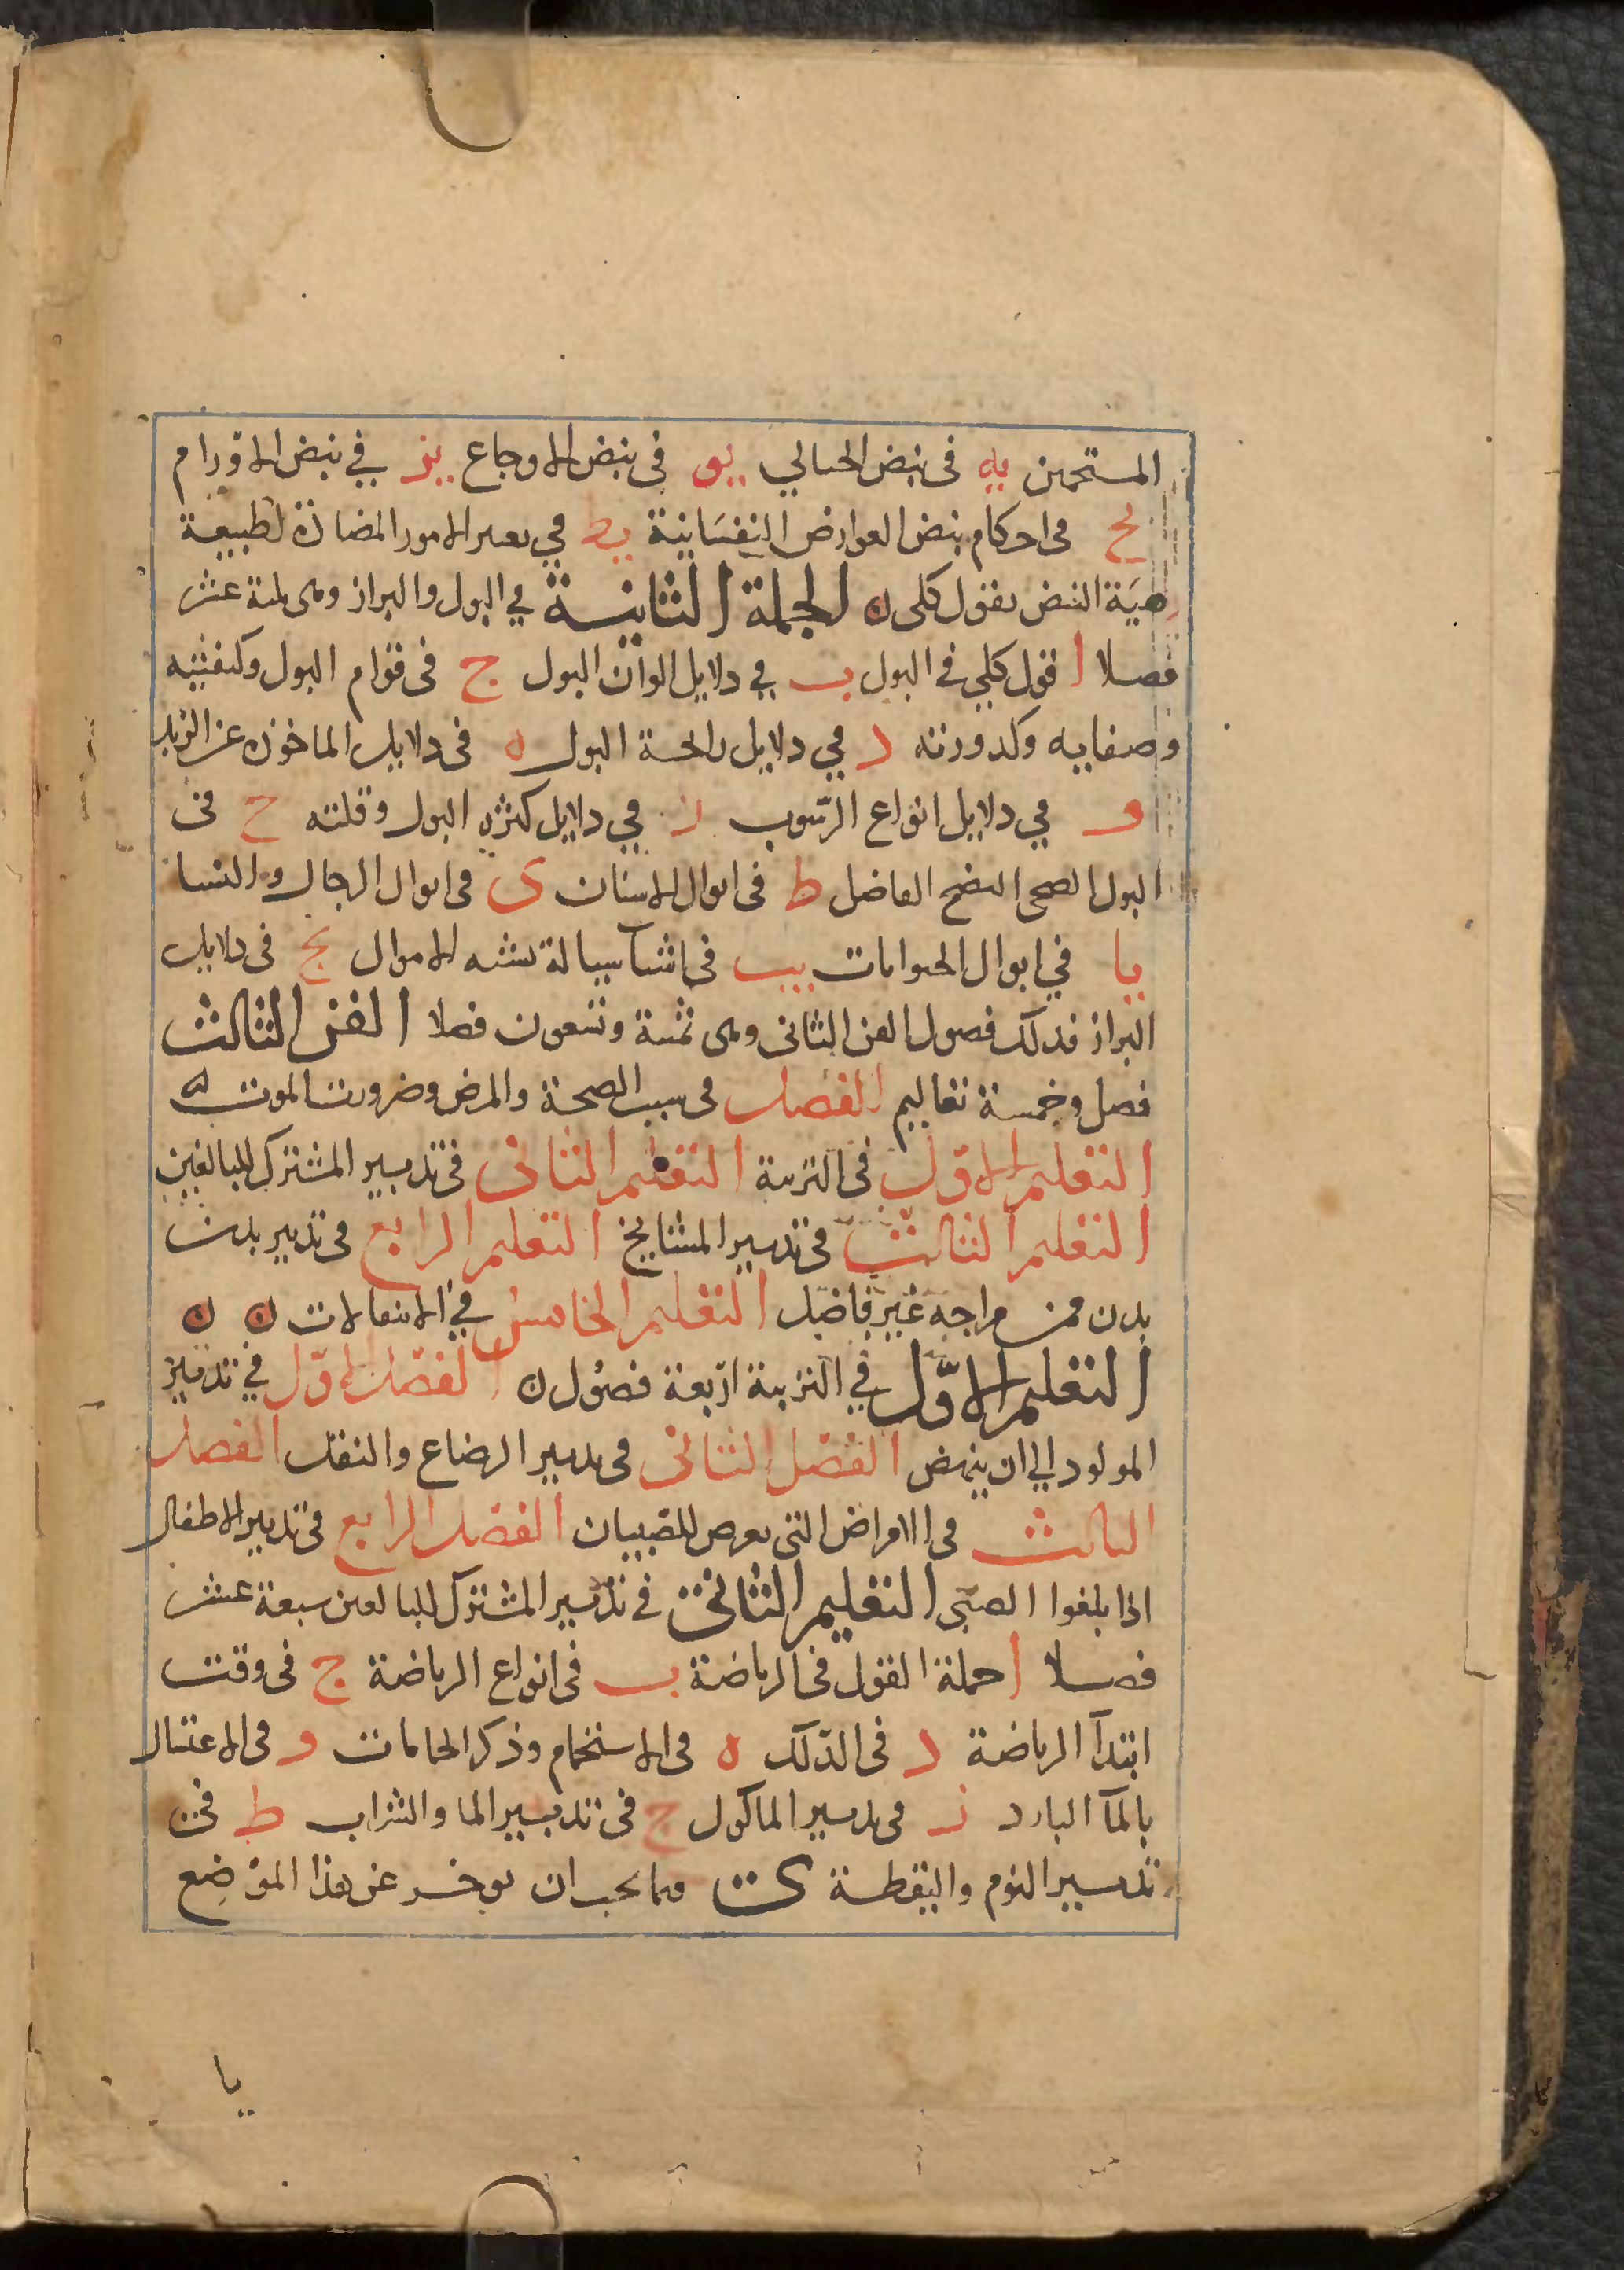 المستحمين يه فى نبض الحبالي يو فى نبض الاوجاع يز في نبض الاورام
يح فى احكام نبض العوارض النفسانية يط في تغير الامور المضادة لطبيعة
هيئة النبض بقول كلى ن الجملة الثانية في البول والبراز وهى ثلثة عشر
فصلا ا قول كلي في البول ب في دلايل الوان البول ج فى قوام البول وكيفيته
وصفايه وكدورته د في دلايل رائحة البول ه فى دلايل الماخوذه عن الزبد
و في دلايل انواع الرسوب ز في دلايل كثره البول وقلته ح فى
البول الصحى النضج الفاضل ط فى ابوال الاسنان ى فى ابوال الرجال والنسا
يا في ابوال الحيوانات يب فى اشيا سيالة تشبه الابوال يج فى دلايل
البراز فذلك فصول الفن الثانى وهى ثمنية وتسعون فصلا الفن الثالث
فصل وخمسة تعاليم الفصل فى سبب الصحة والمرض وضرورت الموت
التعليم الاول فى التربية التعليم الثانى فى تدبير المشترك للبالغين
التعليم الثالث فى تدبير المشايخ التعليم الرابع فى تدبير بدن
بدن من مزاجه غير فاضل التعليم الخامس في الانتقالات ن ن
التعليم الاول في التربية اربعة فصول ن الفصل الاول في تدبير
المولود الي ان ينهض الفصل الثانى فى تدبير الرضاع والنقل الفصل
الثالث فى الامراض التى تعرض للصبيان الفصل الرابع فى تدبير الاطفال
اذا بلغوا الصبى التعليم الثانى في تدبير المشترك للبالغين سبعة عشر
فصلا ا جملة القول فى الرياضة ب فى انواع الرياضة ج فى وقت
ابتدآ الرياضة د فى الدلك ه فى الاستحمام وذكر الحمامات و فى الاغتسال
بالمآ البارد ز فى تدبير الماكول ح فى تدبير الما والشراب ط فى
تدبير النوم واليقظة ى فيما يجب ان يوخر عن هذا الموضع
يا